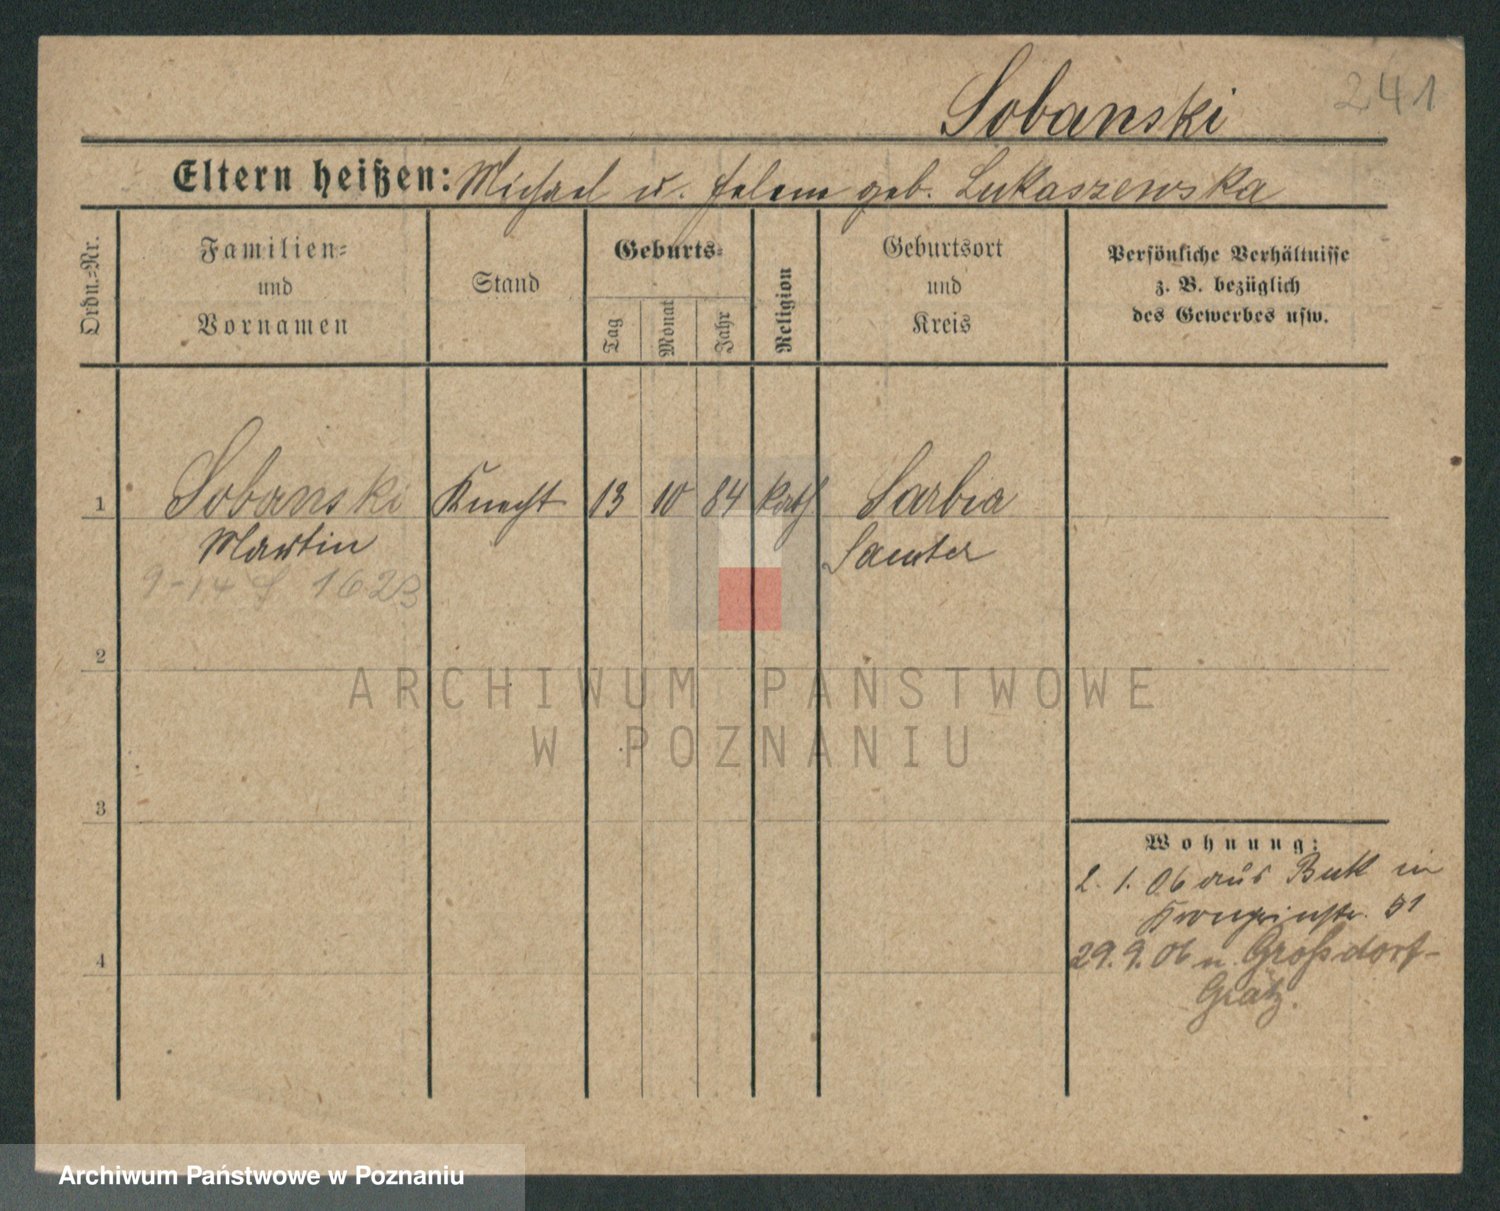 Sobanski
241
Eltern heißen: Michael u. Helene geb. Lukaszewska
Ordn.-Nr.
Familien-
und
Vornamen
Stand
Geburts-
Tag
Monat
Jahr
Religion
Geburtsort
und
Kreis
Persönliche Verhältnisse
z. B. bezüglich
des Gewerbes usw.
1
Sobanski
Knecht
13
10
84
kath
Sarbia
Martin
Samter
9-14 1623
2
ARCHIWUM PAŃSTWOWE
W POZNANIU
3
Wohnung:
2. 1. 06 aus Buk in
Kronprinzstr. 91
4
29. 9. 06 n. Großdorf-
Grätz.
Archiwum Państwowe w Poznaniu